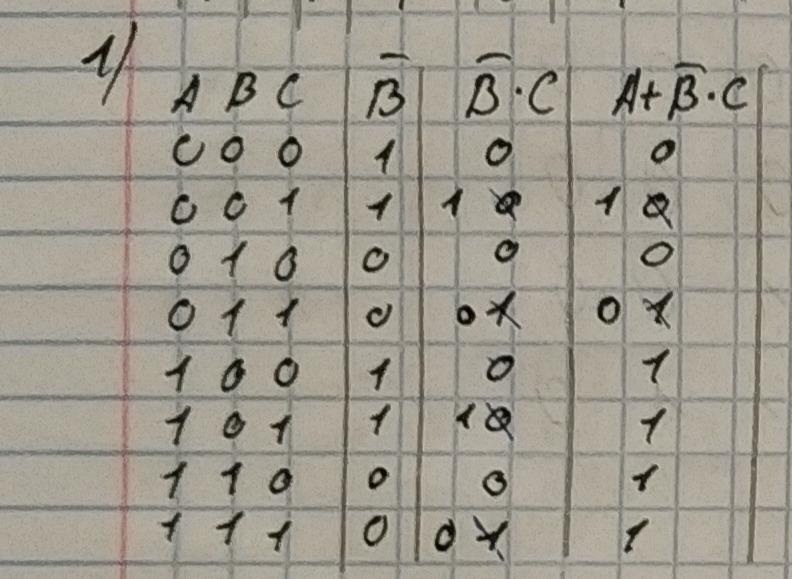 1/
A B C | B̅ | B̅·C | A+B̅·C
0 0 0 | 1 | 0 | 0
0 0 1 | 1 | 1 0 | 1 0
0 1 0 | 0 | 0 | 0
0 1 1 | 0 | 0 1 | 0 1
1 0 0 | 1 | 0 | 1
1 0 1 | 1 | 1 0 | 1
1 1 0 | 0 | 0 | 1
1 1 1 | 0 | 0 1 | 1